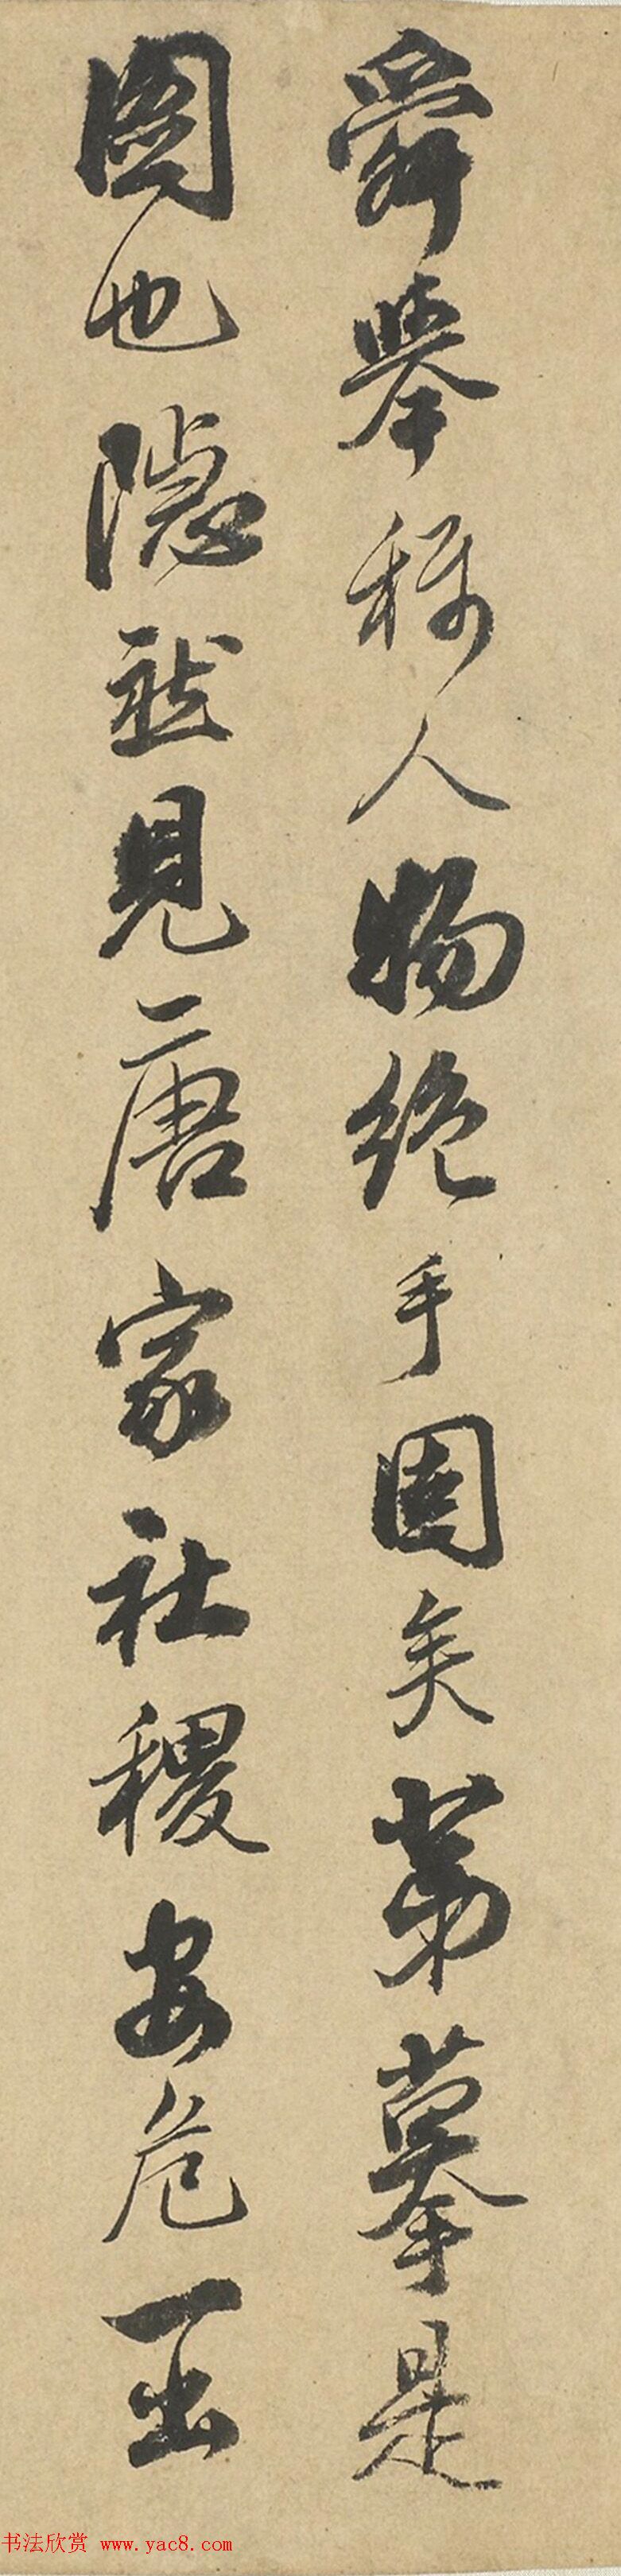 舜舉称人物絶手固矣第摹是
圖也隱然見唐家社稷安危一出
书法欣赏 www.yac8.com